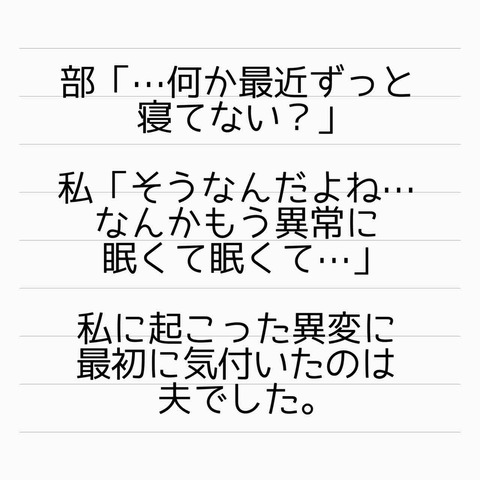 部「…何か最近ずっと
寝てない？」
私「そうなんだよね…
なんかもう異常に
眠くて眠くて…」
私に起こった異変に
最初に気付いたのは
夫でした。